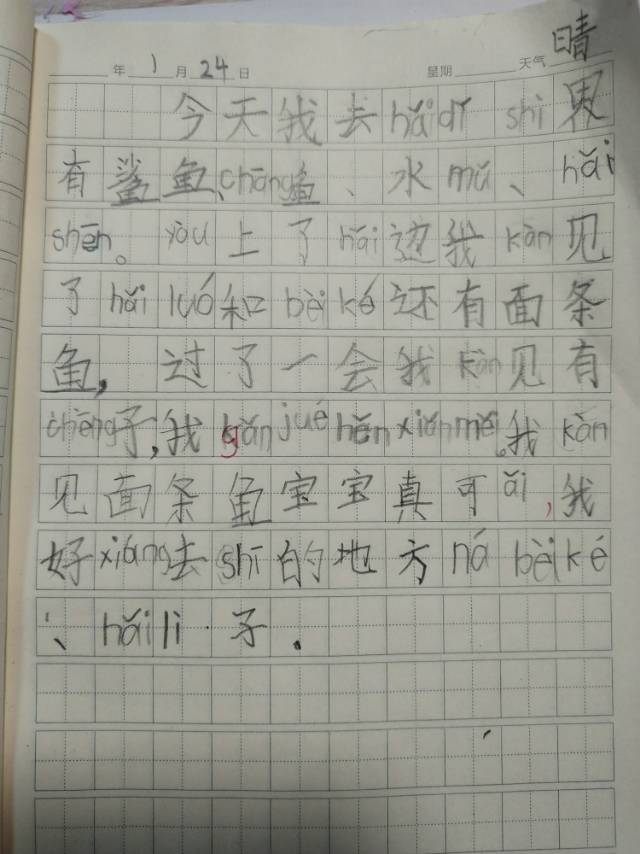 年1月24日 星期 天气晴
今天我去hǎidǐ shì界
有鲨鱼、chāng鱼、水mǔ、hǎi
shēn。yòu上了hǎi边我kàn见
了hǎi luó和bèi ké还有面条
鱼，过了一会我kàn见有
chèng子，我gǎn jué hěn xiān měi。我kàn
见面条鱼宝宝真可ài，我
好xiǎng去shī的地方ná bèi ké
、hǎi lì子.